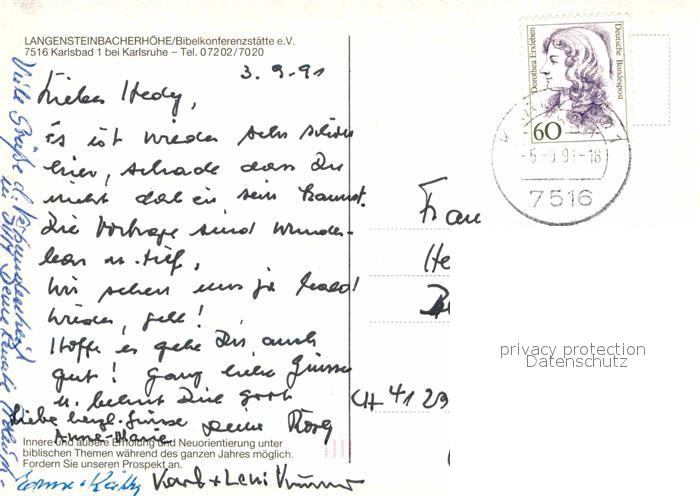 LANGENSTEINBACHERHÖHE/Bibelkonferenzstätte e.V.
7516 Karlsbad 1 bei Karlsruhe – Tel. 07202/7020
3.9.91
Liebe Hedy,
Es ist wieder sehr schön
hier, schade dass Du
nicht dabei sein kannst.
Die Vorträge sind wunder-
bar u. tief,
Wir sehen uns ja bald
wieder, gell!
Hoffe es gehe Dir auch
gut! Ganz liebe Grüsse
u. behüt Dich Gott
Deine
Liebe herzl. Grüsse
Anne-Marie
Innere und äußere Erholung und Neuorientierung unter
biblischen Themen während des ganzen Jahres möglich.
Fordern Sie unseren Prospekt an.
Karl + Leni
Viele Grüße
Deine Renate
Dorothea Erxleben
Deutsche Bundespost
60
-9 91-18
7516
Frau
He
CH 4123
privacy protection
Datenschutz